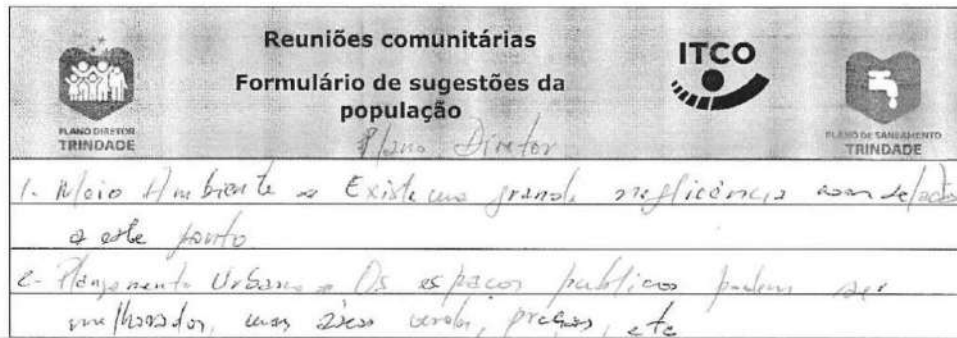 Reuniões comunitárias
Formulário de sugestões da
população
ITCO
PLANO DIRETOR
TRINDADE
PLANO DE SANEAMENTO
TRINDADE
Plano Diretor
1. Meio Ambiente Existe uma grande negligência com relação
a este ponto
2- Planejamento Urbano Os espaços publicos podem ser
melhorados, mas áreas verdes, praças, etc